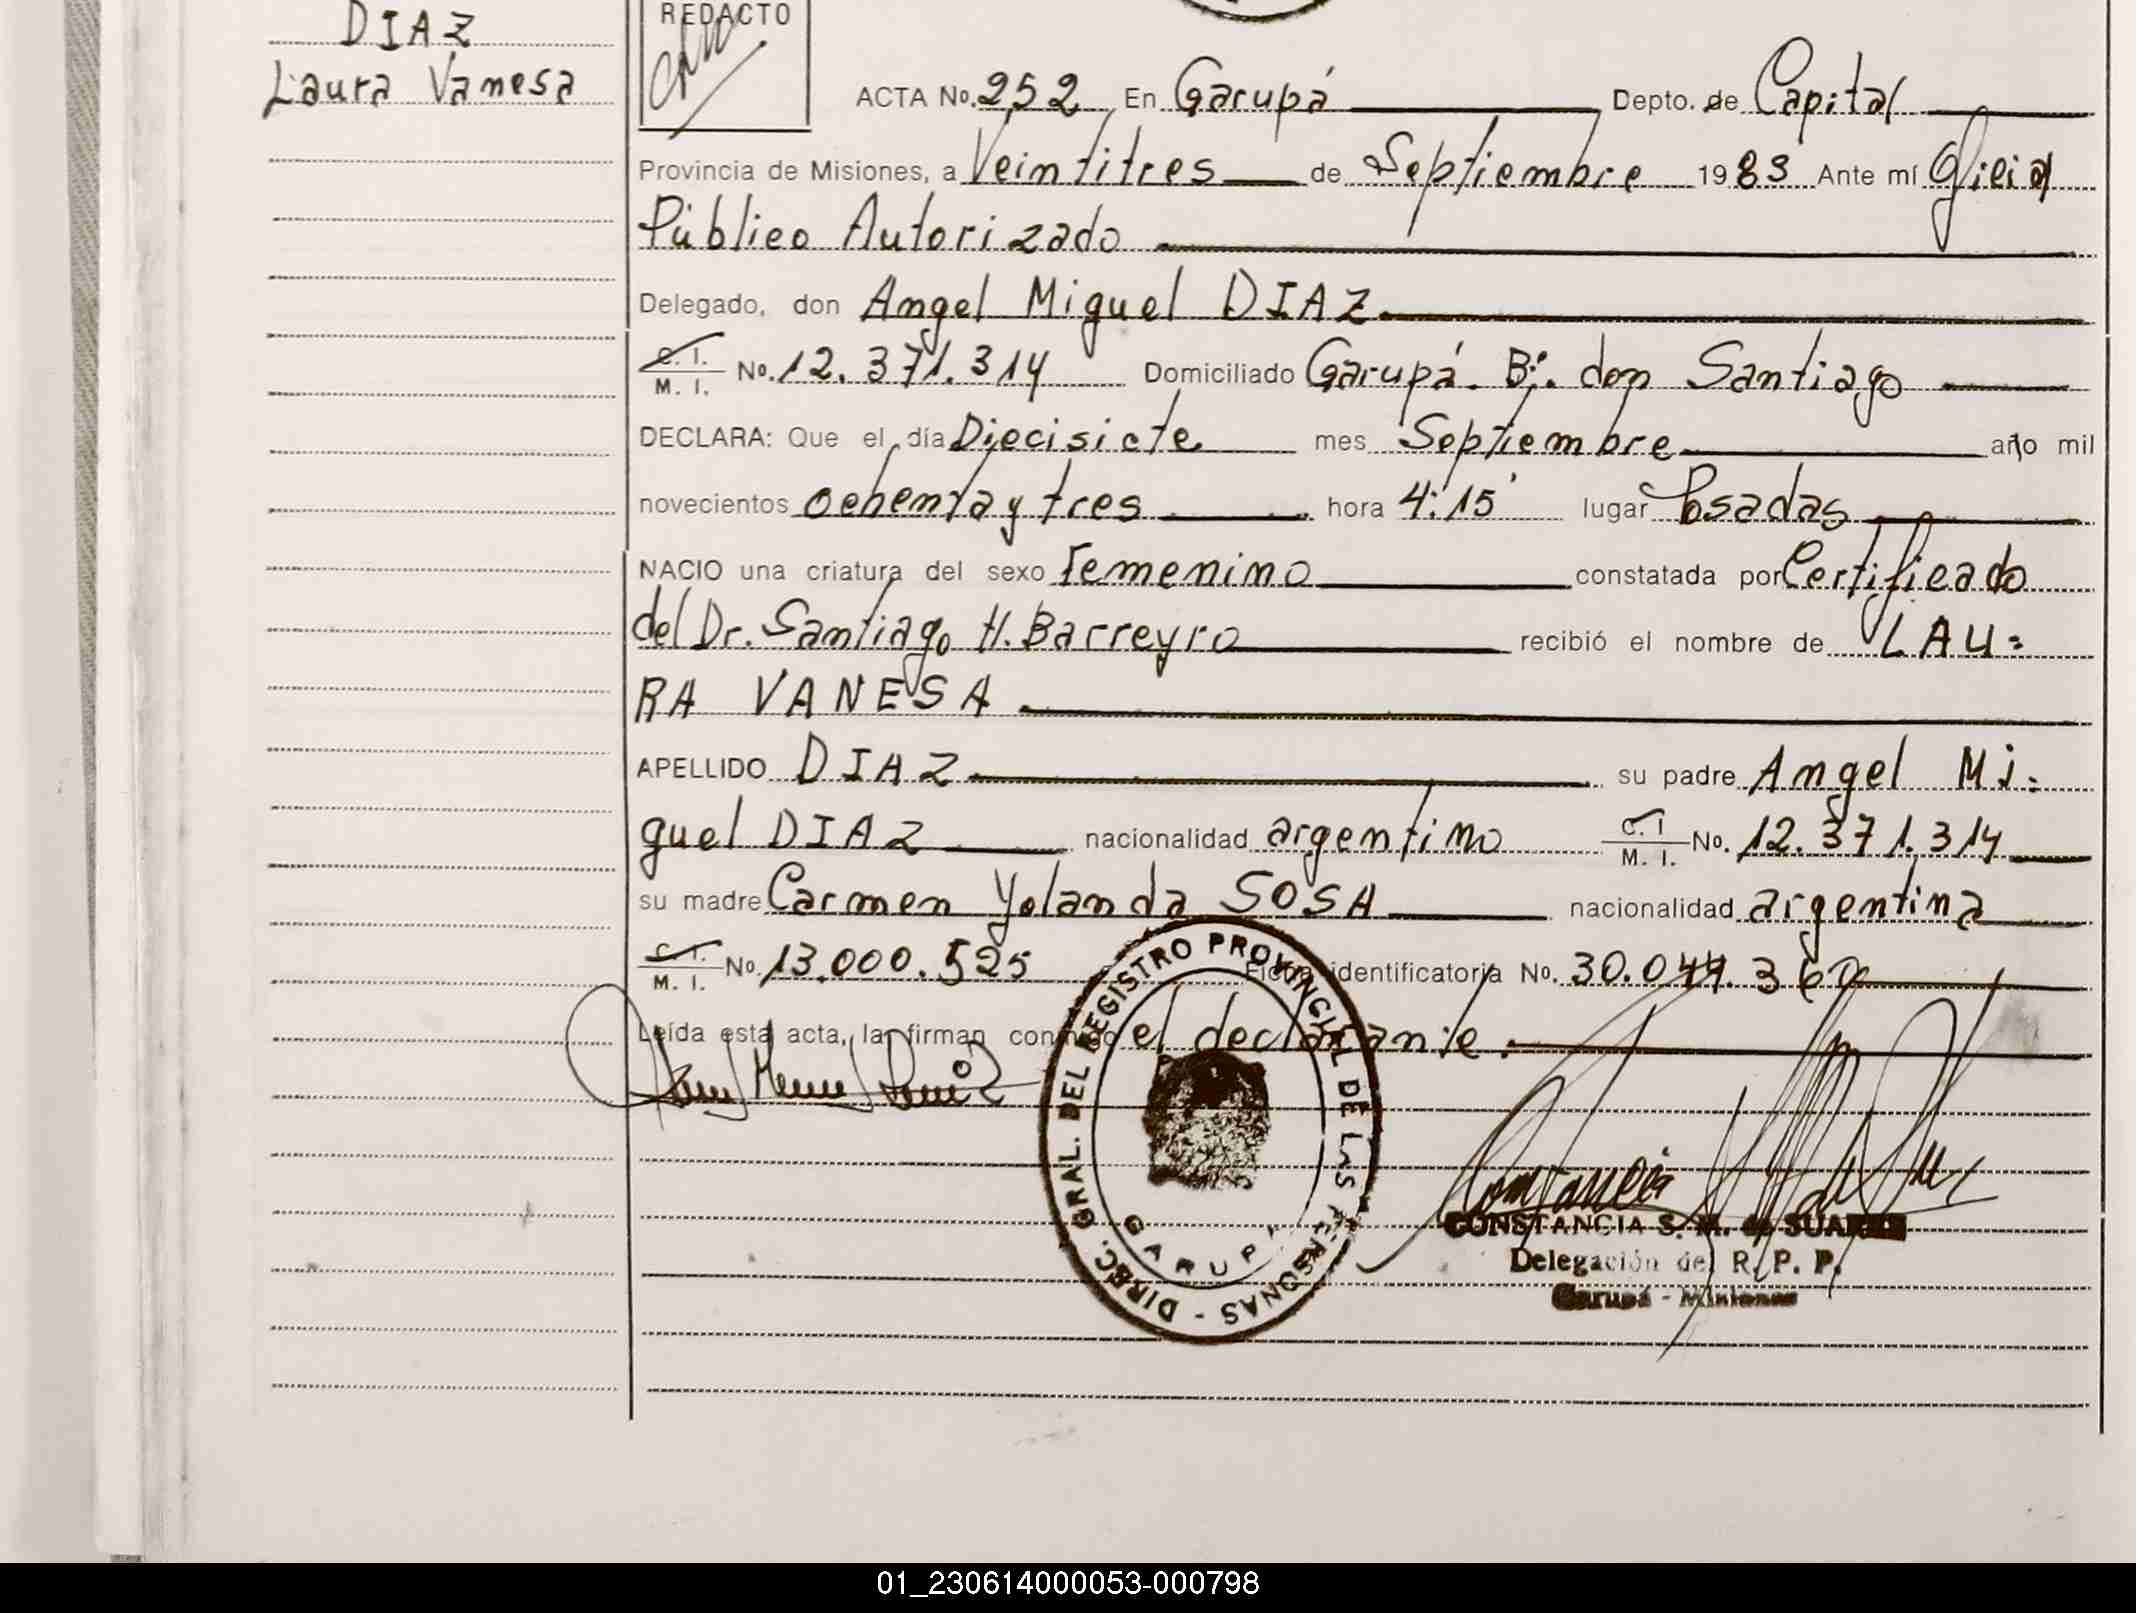 DIAZ
Laura Vanesa
REDACTO
ACTA No. 252 En Garupá Depto. de Capital
Provincia de Misiones, a Veintitres de Septiembre 1983 Ante mí Oficial
Público Autorizado
Delegado, don Angel Miguel DIAZ
C. I.
M. I. No. 12.371.314 Domiciliado Garupá. B: don Santiago
DECLARA: Que el día Diecisiete mes Septiembre año mil
novecientos ochenta y tres hora 4:15' lugar Posadas
NACIO una criatura del sexo femenino constatada por Certificado
del Dr. Santiago H. Barreyro recibió el nombre de LAU=
RA VANESA
APELLIDO DIAZ su padre Angel Mi=
guel DIAZ nacionalidad argentino C. I
M. I. No. 12.371.314
su madre Carmen Yolanda SOSA nacionalidad argentina
C. I.
M. I. No. 13.000.525 Ficha identificatoria No. 30.044.360
Leída esta acta, la firman conmigo el declarante.
DIREC. GRAL. DEL REGISTRO PROVINCIAL DE LAS PERSONAS -
GARUPA
CONSTANCIA S. M. de SUAREZ
Delegación del R. P. P.
Garupá - Misiones
01_230614000053-000798